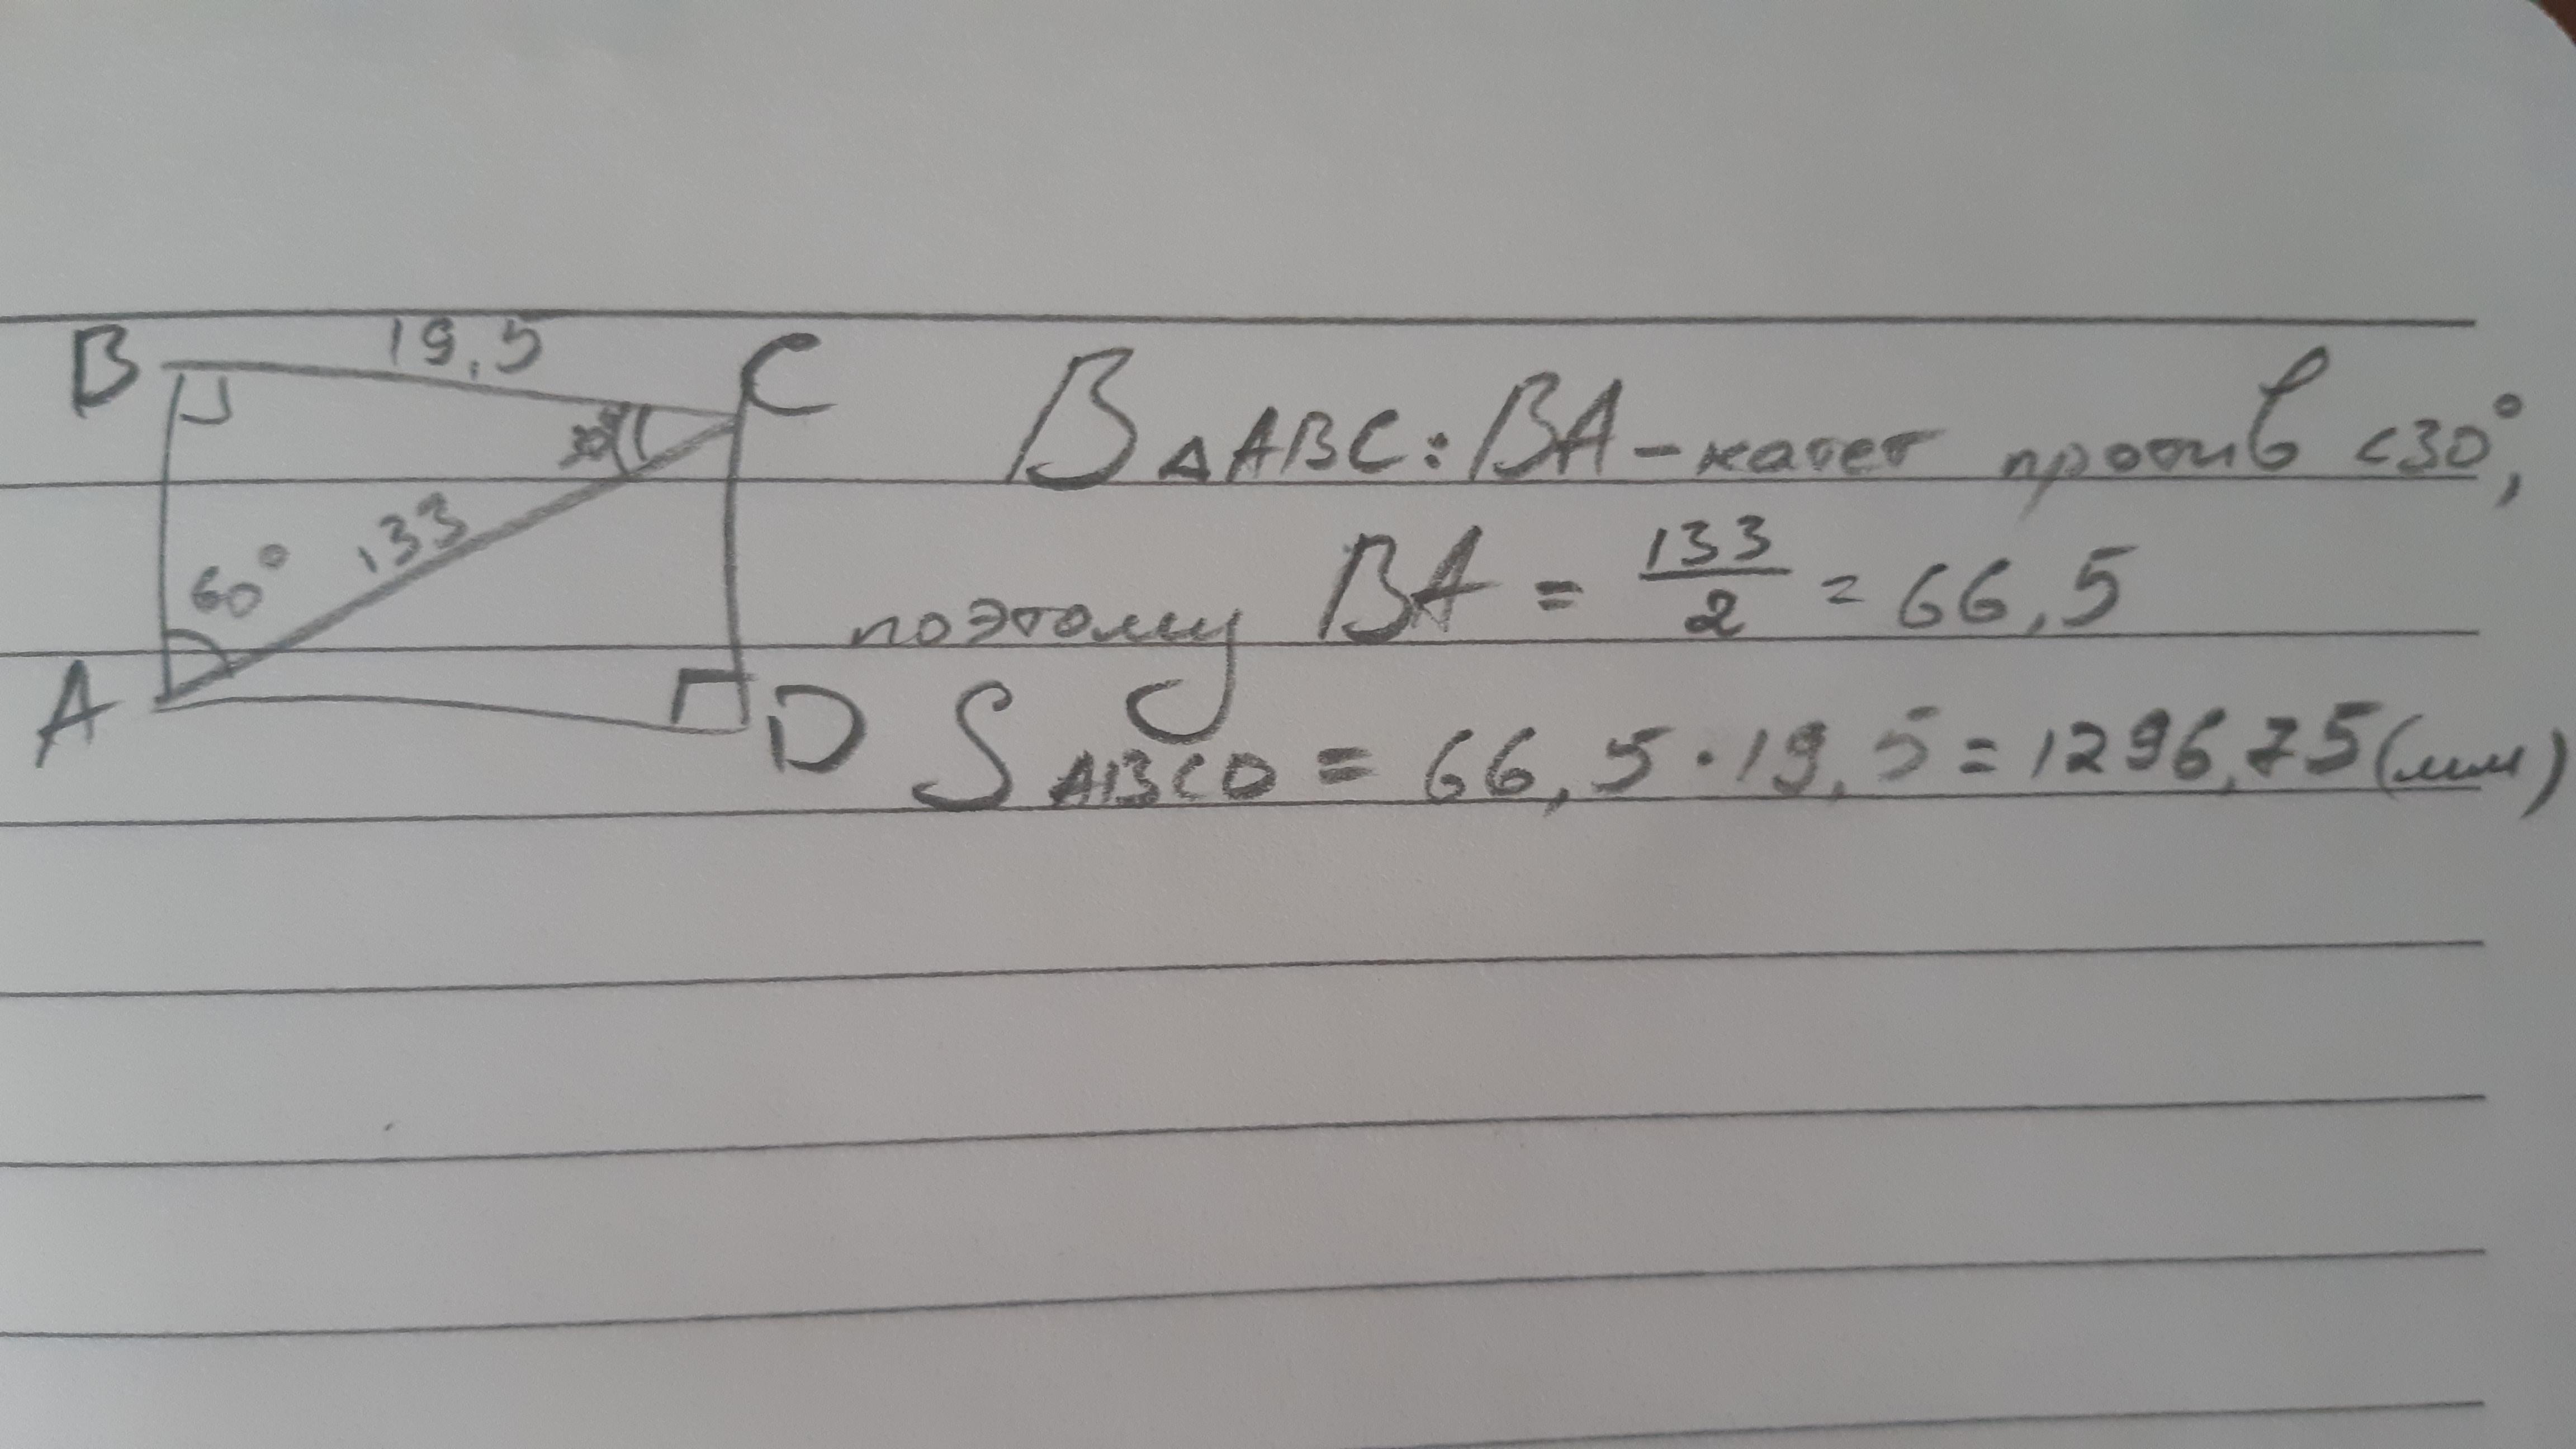 B 19,5 C
30°
60° 133
A D
В △ABC: BA - катет против <30°,
поэтому BA = 133/2 = 66,5
S ABCD = 66,5 · 19,5 = 1296,75 (мм)